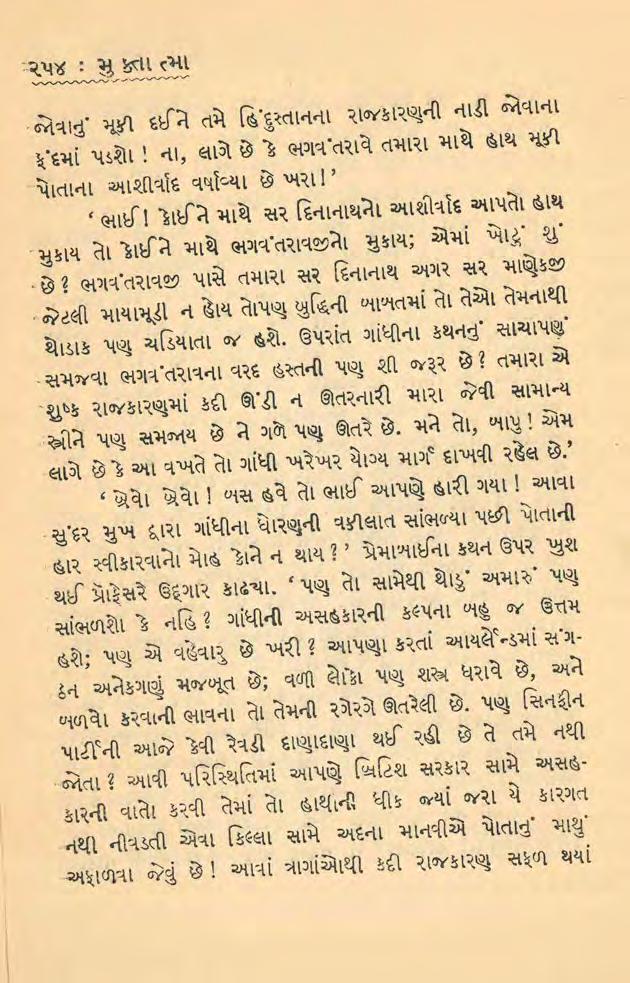 ૨૫૪ : મુક્તાત્મા
જોવાનું મૂકી દઈને તમે હિંદુસ્તાનના રાજકારણની નાડી જોવાના
ફંદમાં પડશો ! ના, લાગે છે કે ભગવંતરાવે તમારા માથે હાથ મૂકી
પોતાના આશીર્વાદ વર્ષાવ્યા છે ખરા!’
‘ ભાઈ! કોઈને માથે સર દિનાનાથનો આશીર્વાદ આપતો હાથ
મુકાય તો કોઈને માથે ભગવંતરાવજીનો મુકાય; એમાં ખોટું શું
છે? ભગવંતરાવજી પાસે તમારા સર દિનાનાથ અગર સર માણેકજી
જેટલી માયામૂડી ન હોય તોપણ બુદ્ધિની બાબતમાં તો તેઓ તેમનાથી
થોડાક પણ ચડિયાતા જ હશે. ઉપરાંત ગાંધીના કથનનું સાચાપણું
સમજવા ભગવંતરાવના વરદ હસ્તની પણ શી જરૂર છે? તમારા એ
શુષ્ક રાજકારણમાં કદી ઊંડી ન ઊતરનારી મારા જેવી સામાન્ય
સ્ત્રીને પણ સમજાય છે ને ગળે પણ ઊતરે છે. મને તો, બાપુ! એમ
લાગે છે કે આ વખતે તો ગાંધી ખરેખર યોગ્ય માર્ગ દાખવી રહેલ છે.’
‘ બ્રેવો બ્રેવો! બસ હવે તો ભાઈ આપણે હારી ગયા! આવા
સુંદર મુખ દ્વારા ગાંધીના ધોરણની વકીલાત સાંભળ્યા પછી પોતાની
હાર સ્વીકારવાનો મોહ કોને ન થાય?’ પ્રેમાબાઈના કથન ઉપર ખુશ
થઈ પ્રૉફેસરે ઉદ્દગાર કાઢયા. ‘પણ તો સામેથી થોડું અમારું પણ
સાંભળશો કે નહિ? ગાંધીની અસહકારની કલ્પના બહુ જ ઉત્તમ
હશે; પણ એ વહેવારુ છે ખરી? આપણા કરતાં આયર્લેન્ડમાં સંગ-
ઠન અનેકગણું મજબૂત છે; વળી લોકો પણ શસ્ત્ર ધરાવે છે, અને
બળવો કરવાની ભાવના તો તેમની રગેરગે ઊતરેલી છે. પણ સિનફીન
પાર્ટીની આજે કેવી રેવડી દાણાદાણા થઈ રહી છે તે તમે નથી
જોતા? આવી પરિસ્થિતિમાં આપણે બ્રિટિશ સરકાર સામે અસહ-
કારની વાતો કરવી તેમાં તો હાથીની ધીક જ્યાં જરા યે કારગત
નથી નીવડતી એવા કિલ્લા સામે અદના માનવીએ પોતાનું માથું
અફાળવા જેવું છે! આવાં ત્રાગાંઓથી કદી રાજકારણ સફળ થયાં